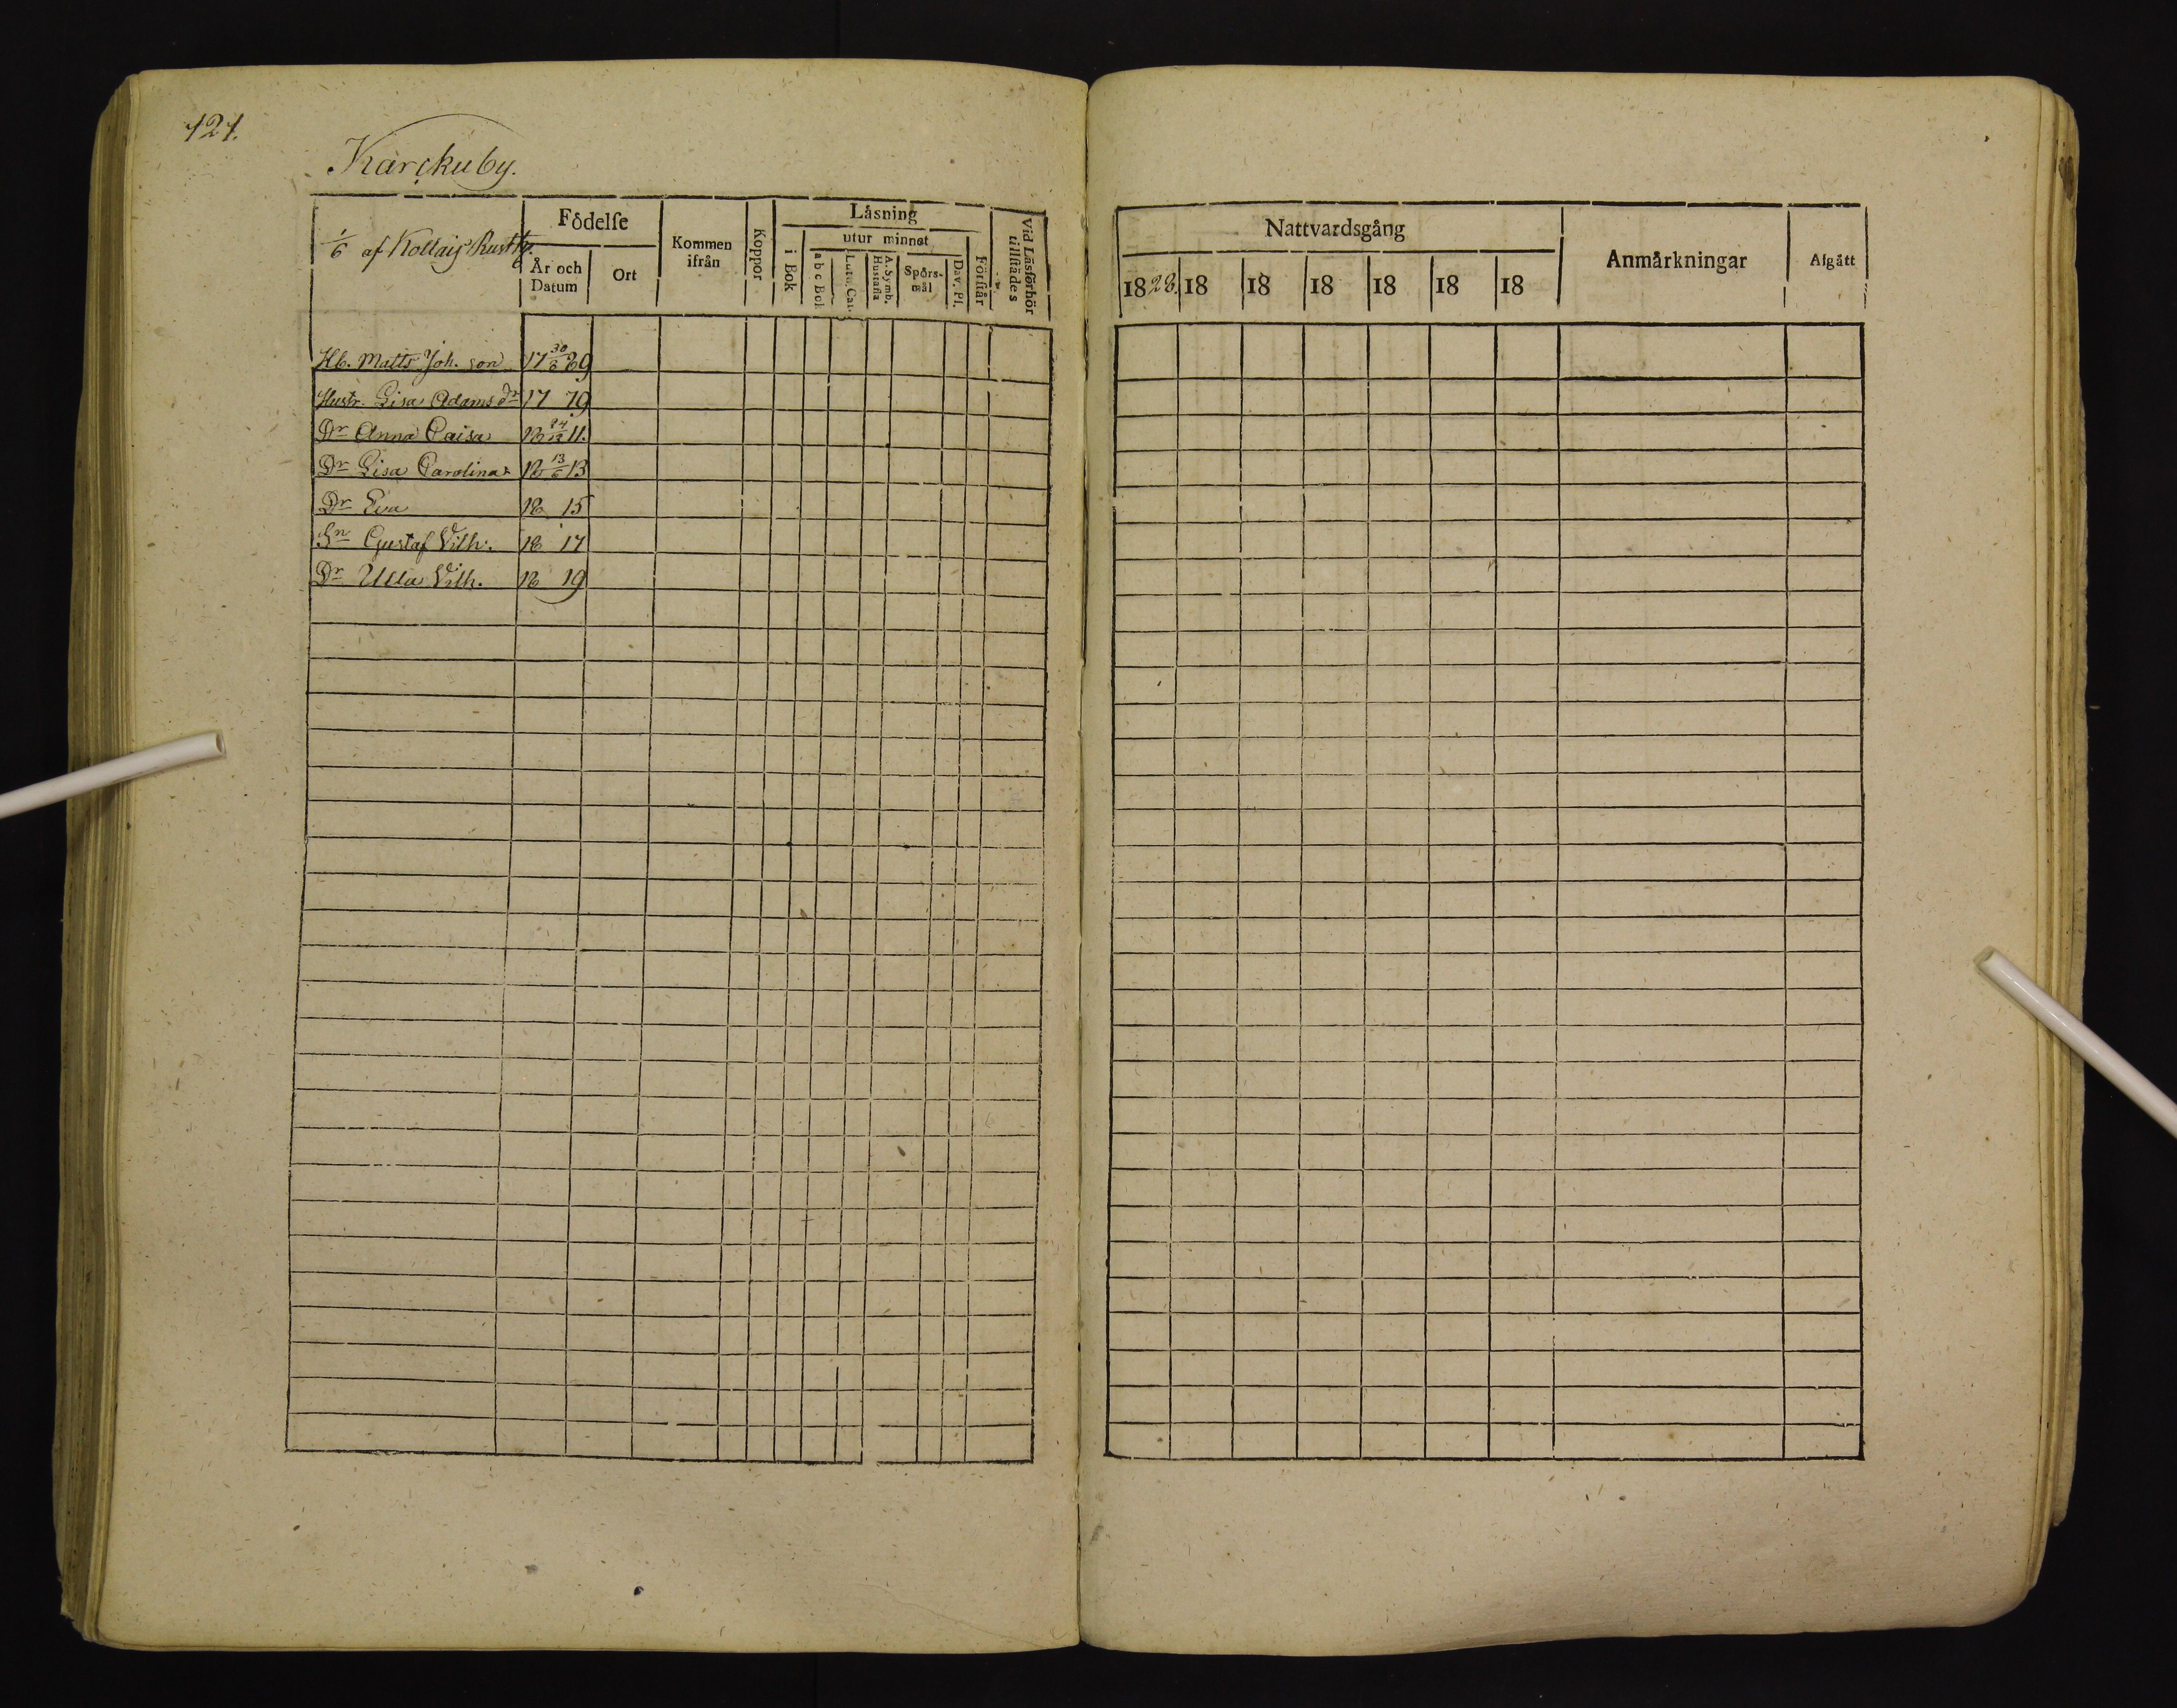 121.
Karckuby.
1/6 af Kollais Rusth.
Födelse
År och Datum
Ort
Kommen ifrån
Koppor
Läsning
i Bok
utur minnet
a b c Bok
Luth. Cat.
A. Symb. Hustafla
Spörsmål
Dav. Ps.
Förstår
Vid Läsförhör tillstädes
Nattvardsgång
1828. 18 18 18 18 18 18
Anmärkningar
Afgått
Hb. Matts Joh. son 17 30/8 69
Hustr. Lisa Adams dr 17 79
Dr Anna Caisa 18 24/12 11.
Dr Lisa Carolina 18 13/6 13
Dr Eva 18 15
Sn Gustaf Vilh. 18 17
Dr Ulla Vilh. 18 19